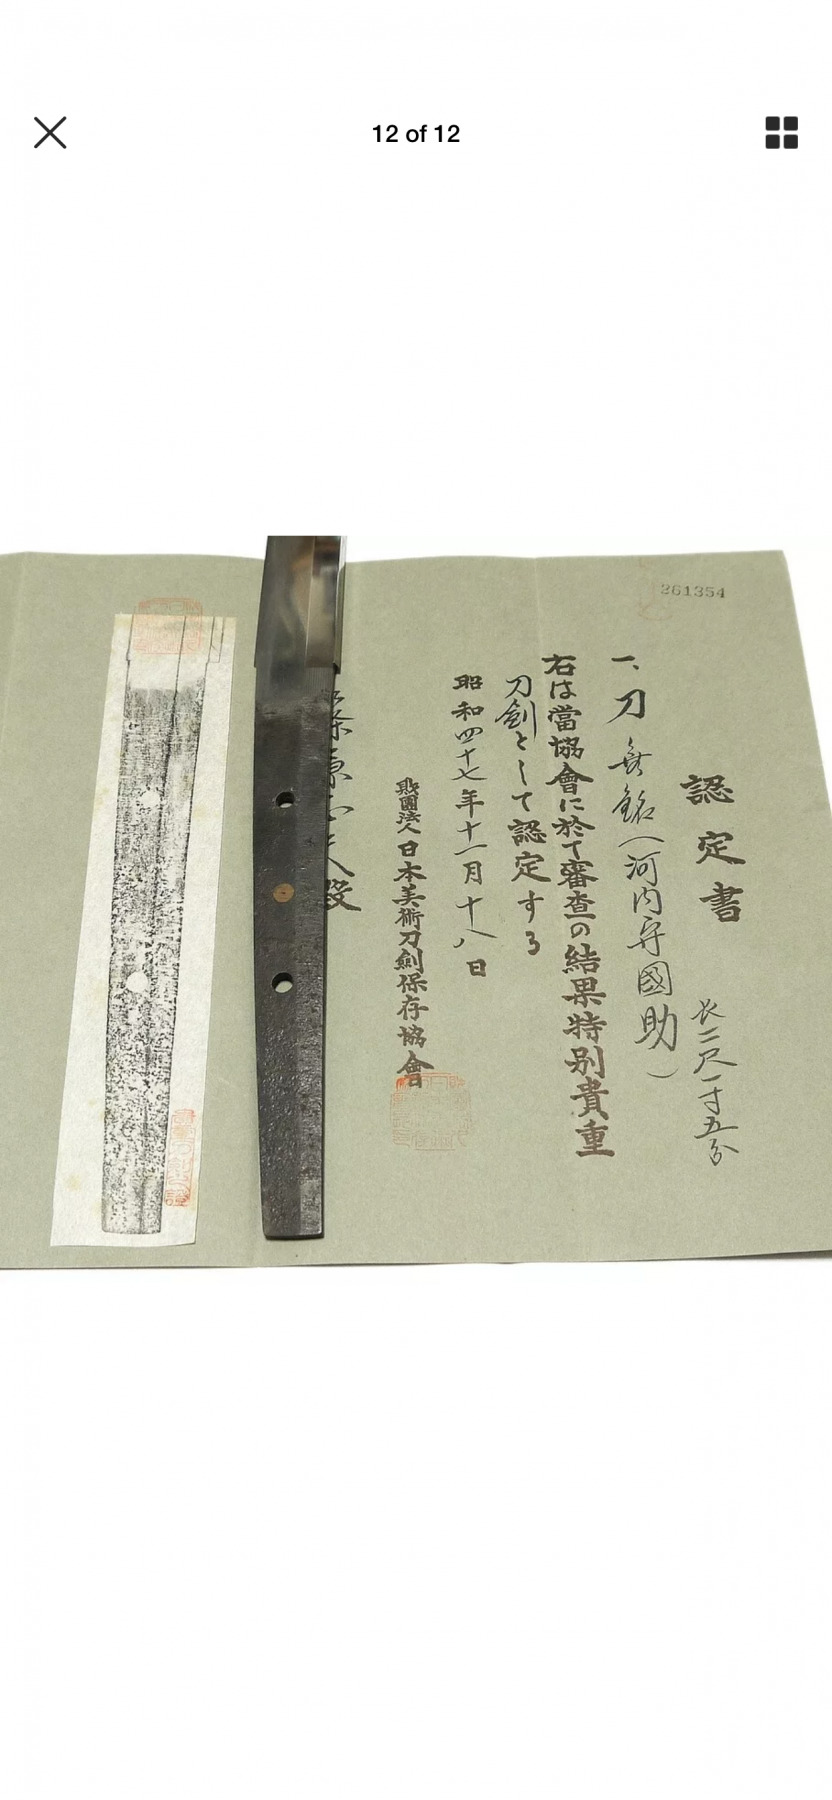 12 of 12
261354
認定書
一、刀 無銘（河内守國助）
長二尺一寸五分
右は當協會に於て審査の結果特別貴重
刀劍として認定する
昭和四十七年十一月十八日
財團法人日本美術刀劍保存協會
殿